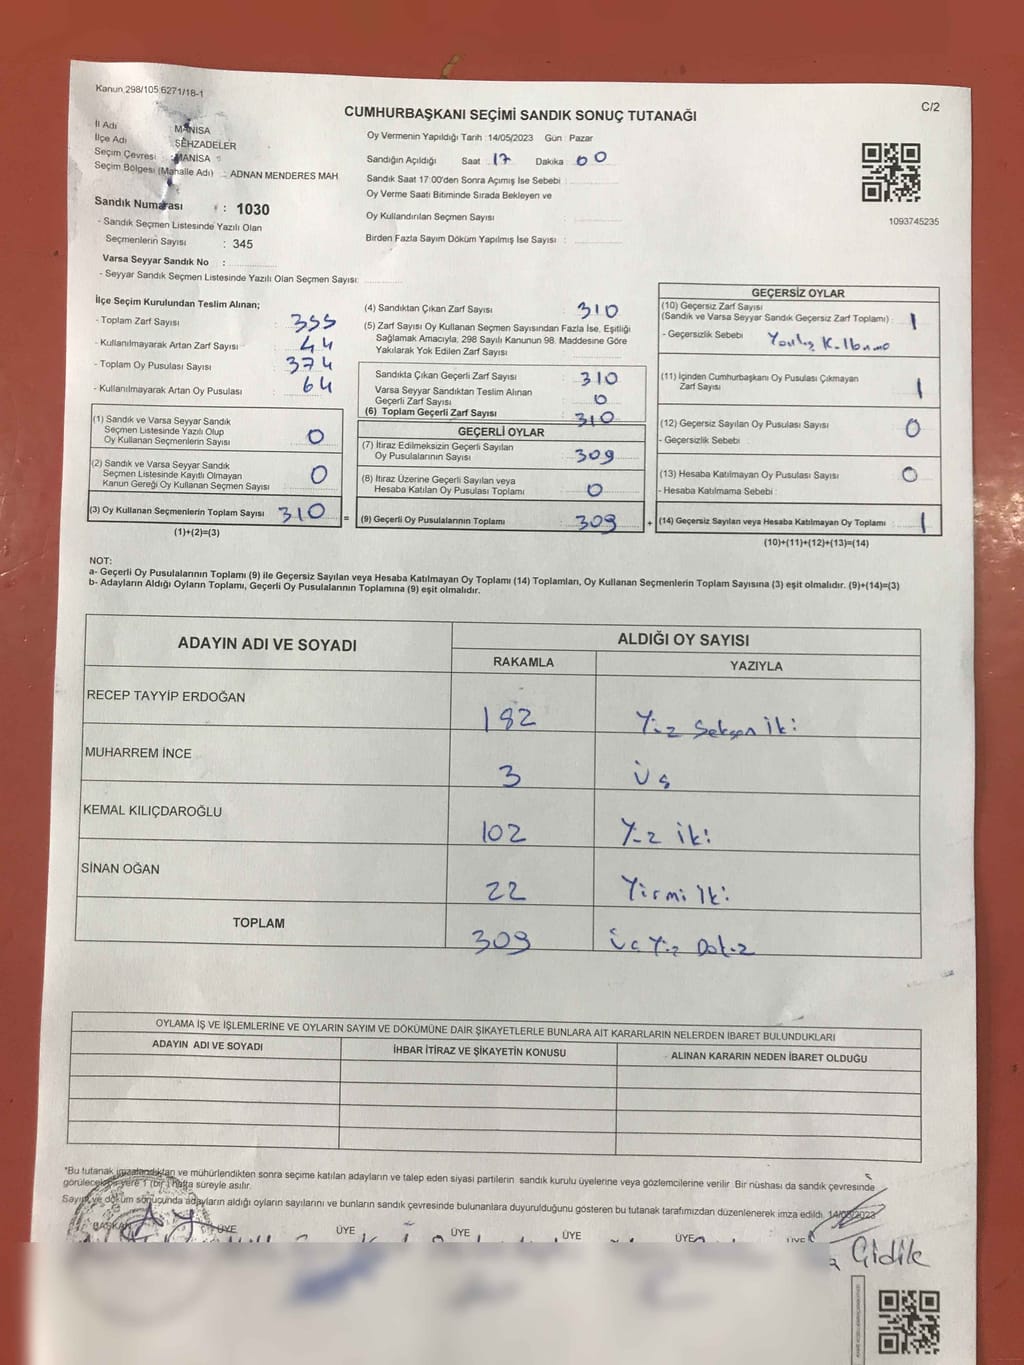 Kanun 298/105 6271/18-1
C/2
CUMHURBAŞKANI SEÇİMİ SANDIK SONUÇ TUTANAĞI
İl Adı MANİSA
İlçe Adı ŞEHZADELER
Seçim Çevresi : MANİSA
Seçim Bölgesi (Mahalle Adı) : ADNAN MENDERES MAH
Sandık Numarası : 1030
- Sandık Seçmen Listesinde Yazılı Olan
Seçmenlerin Sayısı : 345
Varsa Seyyar Sandık No :
- Seyyar Sandık Seçmen Listesinde Yazılı Olan Seçmen Sayısı:
Oy Vermenin Yapıldığı Tarih :14/05/2023 Gün : Pazar
Sandığın Açıldığı Saat 17 Dakika 00
Sandık Saat 17:00'den Sonra Açımış İse Sebebi :
Oy Verme Saati Bitiminde Sırada Bekleyen ve
Oy Kullandırılan Seçmen Sayısı
Birden Fazla Sayım Döküm Yapılmış İse Sayısı :
1093745235
İlçe Seçim Kurulundan Teslim Alınan;
- Toplam Zarf Sayısı 355
- Kullanılmayarak Artan Zarf Sayısı 44
- Toplam Oy Pusulası Sayısı 374
- Kullanılmayarak Artan Oy Pusulası 64
(1) Sandık ve Varsa Seyyar Sandık
Seçmen Listesinde Yazılı Olup
Oy Kullanan Seçmenlerin Sayısı 0
(2) Sandık ve Varsa Seyyar Sandık
Seçmen Listesinde Kayıtlı Olmayan
Kanun Gereği Oy Kullanan Seçmen Sayısı 0
(3) Oy Kullanan Seçmenlerin Toplam Sayısı 310
(1)+(2)=(3)
(4) Sandıktan Çıkan Zarf Sayısı 310
(5) Zarf Sayısı Oy Kullanan Seçmen Sayısından Fazla İse, Eşitliği
Sağlamak Amacıyla, 298 Sayılı Kanunun 98. Maddesine Göre
Yakılarak Yok Edilen Zarf Sayısı
Sandıkta Çıkan Geçerli Zarf Sayısı : 310
Varsa Seyyar Sandıktan Teslim Alınan
Geçerli Zarf Sayısı : 0
(6) Toplam Geçerli Zarf Sayısı : 310
GEÇERLİ OYLAR
(7) İtiraz Edilmeksizin Geçerli Sayılan
Oy Pusulalarının Sayısı 309
(8) İtiraz Üzerine Geçerli Sayılan veya
Hesaba Katılan Oy Pusulası Toplamı : 0
= (9) Geçerli Oy Pusulalarının Toplamı : 309
GEÇERSİZ OYLAR
(10) Geçersiz Zarf Sayısı
(Sandık ve Varsa Seyyar Sandık Geçersiz Zarf Toplamı) : 1
- Geçersizlik Sebebi :
(11) İçinden Cumhurbaşkanı Oy Pusulası Çıkmayan
Zarf Sayısı 1
(12) Geçersiz Sayılan Oy Pusulası Sayısı : 0
- Geçersizlik Sebebi
(13) Hesaba Katılmayan Oy Pusulası Sayısı : 0
- Hesaba Katılmama Sebebi :
+ (14) Geçersiz Sayılan veya Hesaba Katılmayan Oy Toplamı : 1
(10)+(11)+(12)+(13)=(14)
NOT:
a- Geçerli Oy Pusulalarının Toplamı (9) ile Geçersiz Sayılan veya Hesaba Katılmayan Oy Toplamı (14) Toplamları, Oy Kullanan Seçmenlerin Toplam Sayısına (3) eşit olmalıdır. (9)+(14)=(3)
b- Adayların Aldığı Oyların Toplamı, Geçerli Oy Pusulalarının Toplamına (9) eşit olmalıdır.
ADAYIN ADI VE SOYADI
ALDIĞI OY SAYISI
RAKAMLA YAZIYLA
RECEP TAYYİP ERDOĞAN 182 Yüz Seksen İki
MUHARREM İNCE 3 Üç
KEMAL KILIÇDAROĞLU 102 Yüz İki
SİNAN OĞAN 22 Yirmi İki
TOPLAM 309 Üç Yüz Dokuz
OYLAMA İŞ VE İŞLEMLERİNE VE OYLARIN SAYIM VE DÖKÜMÜNE DAİR ŞİKAYETLERLE BUNLARA AİT KARARLARIN NELERDEN İBARET BULUNDUKLARI
ADAYIN ADI VE SOYADI İHBAR İTİRAZ VE ŞİKAYETİN KONUSU ALINAN KARARIN NEDEN İBARET OLDUĞU
*Bu tutanak imzalandıktan ve mühürlendikten sonra seçime katılan adayların ve talep eden siyasi partilerin sandık kurulu üyelerine veya gözlemcilerine verilir Bir nüshası da sandık çevresinde
görülecek bir yere 1 (bir) hafta süreyle asılır.
Sayım ve döküm sonucunda adayların aldığı oyların sayılarını ve bunların sandık çevresinde bulunanlara duyurulduğunu gösteren bu tutanak tarafımızdan düzenlenerek imza edildi. 14/05/2023
BAŞKAN ÜYE ÜYE ÜYE ÜYE ÜYE ÜYE
Gidik